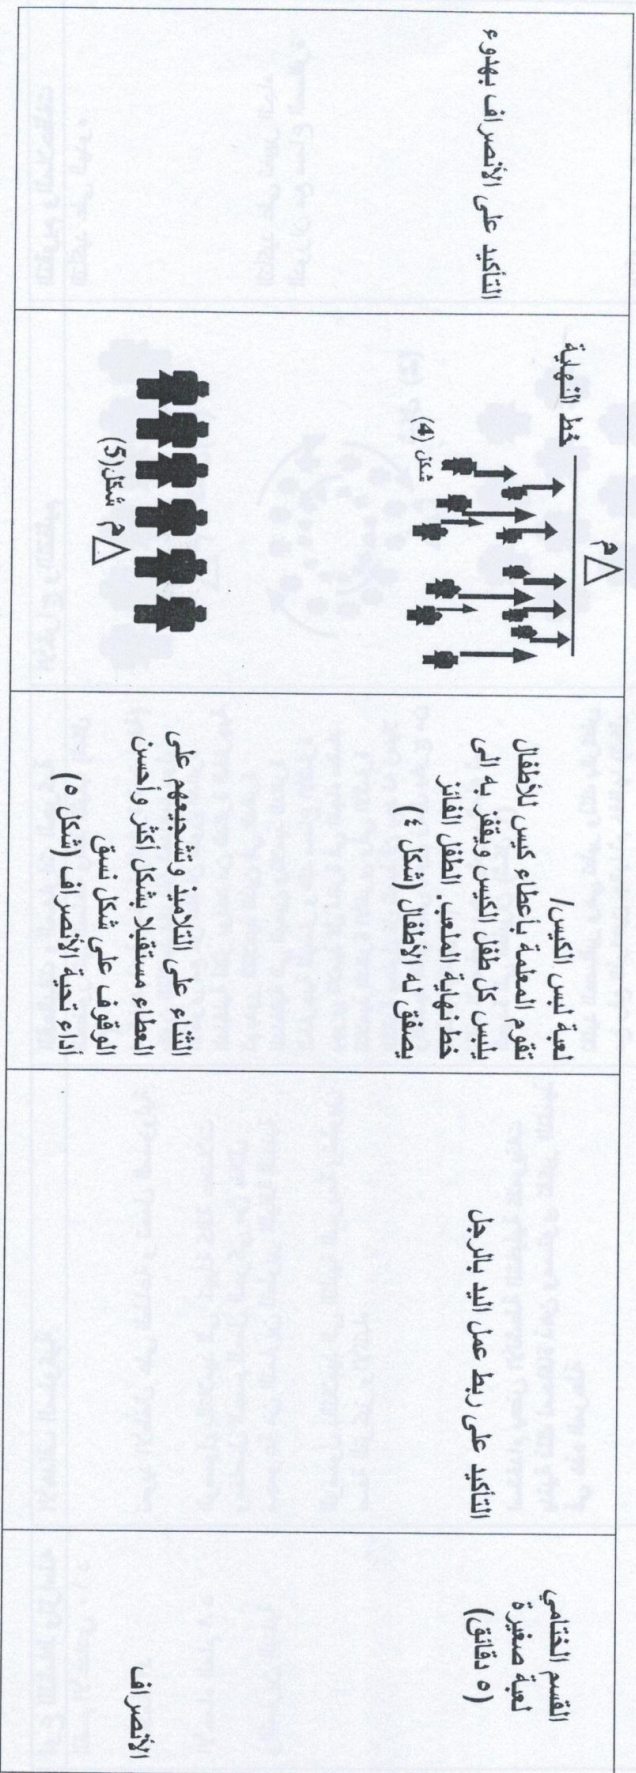 القسم الختامي
لعبة صغيرة
(٥ دقائق)
الأنصراف
التأكيد على ربط عمل اليد بالرجل
لعبة لبس الكيس/
تقوم المعلمة بأعطاء كيس للأطفال
يلبس كل طفل الكيس ويقفز به الى
خط نهاية الملعب. الطفل الفائز
يصفق له الأطفال (شكل ٤)
الثناء على التلاميذ وتشجيعهم على
العطاء مستقبلا بشكل أكثر وأحسن
الوقوف على شكل نسق
أداء تحية الأنصراف (شكل ٥)
م
خط النهاية
شكل (4)
م شكل(5)
التأكيد على الأنصراف بهدوء